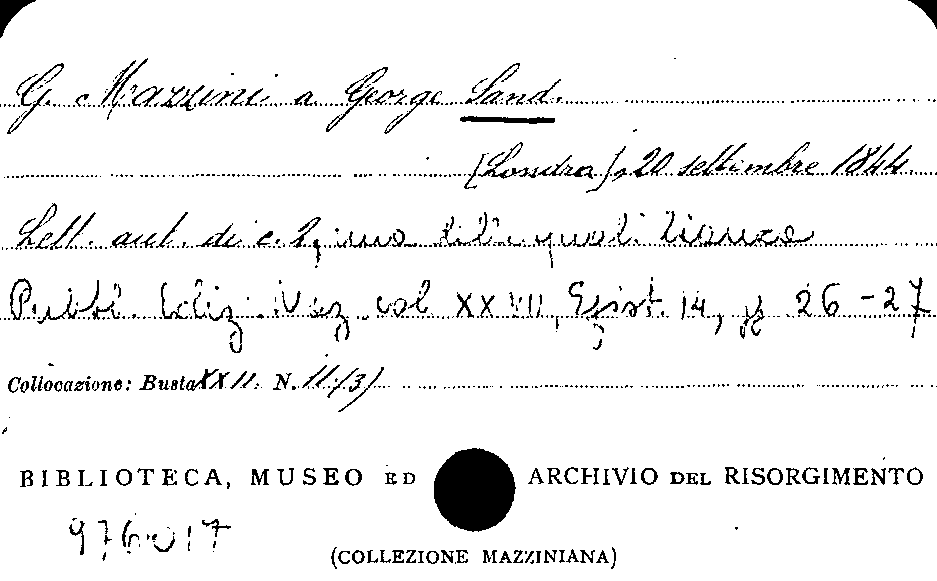 G. Mazzini a George Sand.
[Londra], 20 settembre 1844.
Lett. aut. di c. 2, una delle quali bianca
Pubbl. Ediz. Naz. vol XXVII, Epist. 14, pp. 26-27
Collocazione: Busta XXII. N. 11(3)
BIBLIOTECA, MUSEO ED ARCHIVIO DEL RISORGIMENTO
(COLLEZIONE MAZZINIANA)